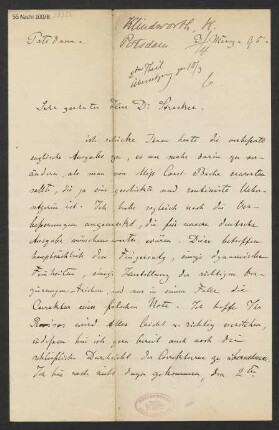 55 Nachl 100/B
Klindworth, K.
Potsdam
Potsdam.
März 95.
2ten Theil
Übersetzung
Sehr geehrter Herr Dr Strecker.
ich schicke Ihnen heute die verbesserte
englische Ausgabe
es war mehr darin zu ver-
ändern, als man von Miss Const. Bache erwarten
sollte, die ja eine geschickte und routinierte Ueber-
setzerin ist. Ich habe zugleich noch die Ver-
besserungen angemerkt, die für unsere deutsche
Ausgabe wünschenswerth wären. Diese betreffen
hauptsächlich den Fingersatz, einige dynamische
Feinheiten, einige Herstellung der richtigen
und nur in einem Falle die
Correktur einer falschen Note. Ich hoffe Ihr
Revisor wird Alles leicht u. richtig verstehen,
indessen bin ich gern bereit auch noch die
schließliche Durchsicht der Correkturen zu übernehmen.
Ich bin noch nicht dazu gekommen, den 2ten